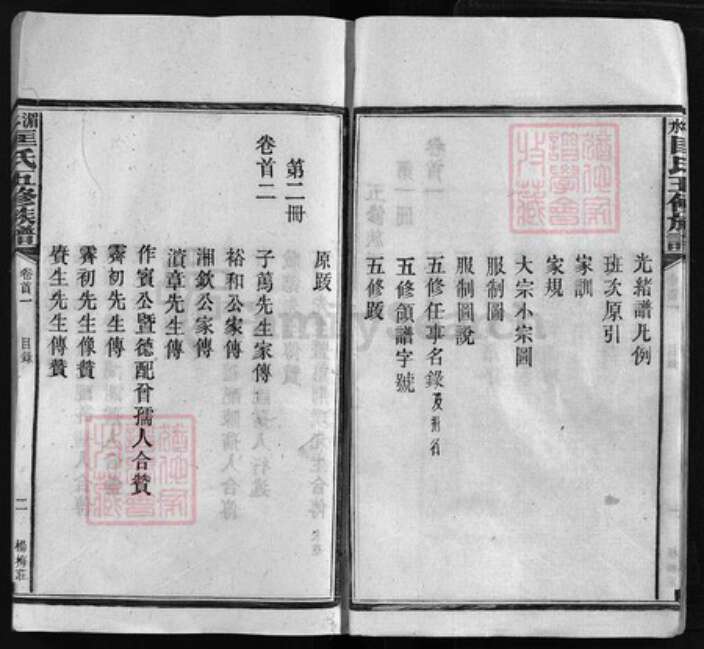 光緒譜凡例
班次原引
家訓
家規
大宗小宗圖
服制圖
服制圖說
五修任事名錄
五修領譜字號
五修跋
第二冊
卷首二
原跋
子萬先生家傳
裕和公家傳
湘欽公家傳
濆章先生傳
作賓公暨德配曾孺人合贊
霽初先生傳
霽初先生像贊
賡生先生傳贊
匡氏五修族譜
卷首一
目錄
二
楊梅莊